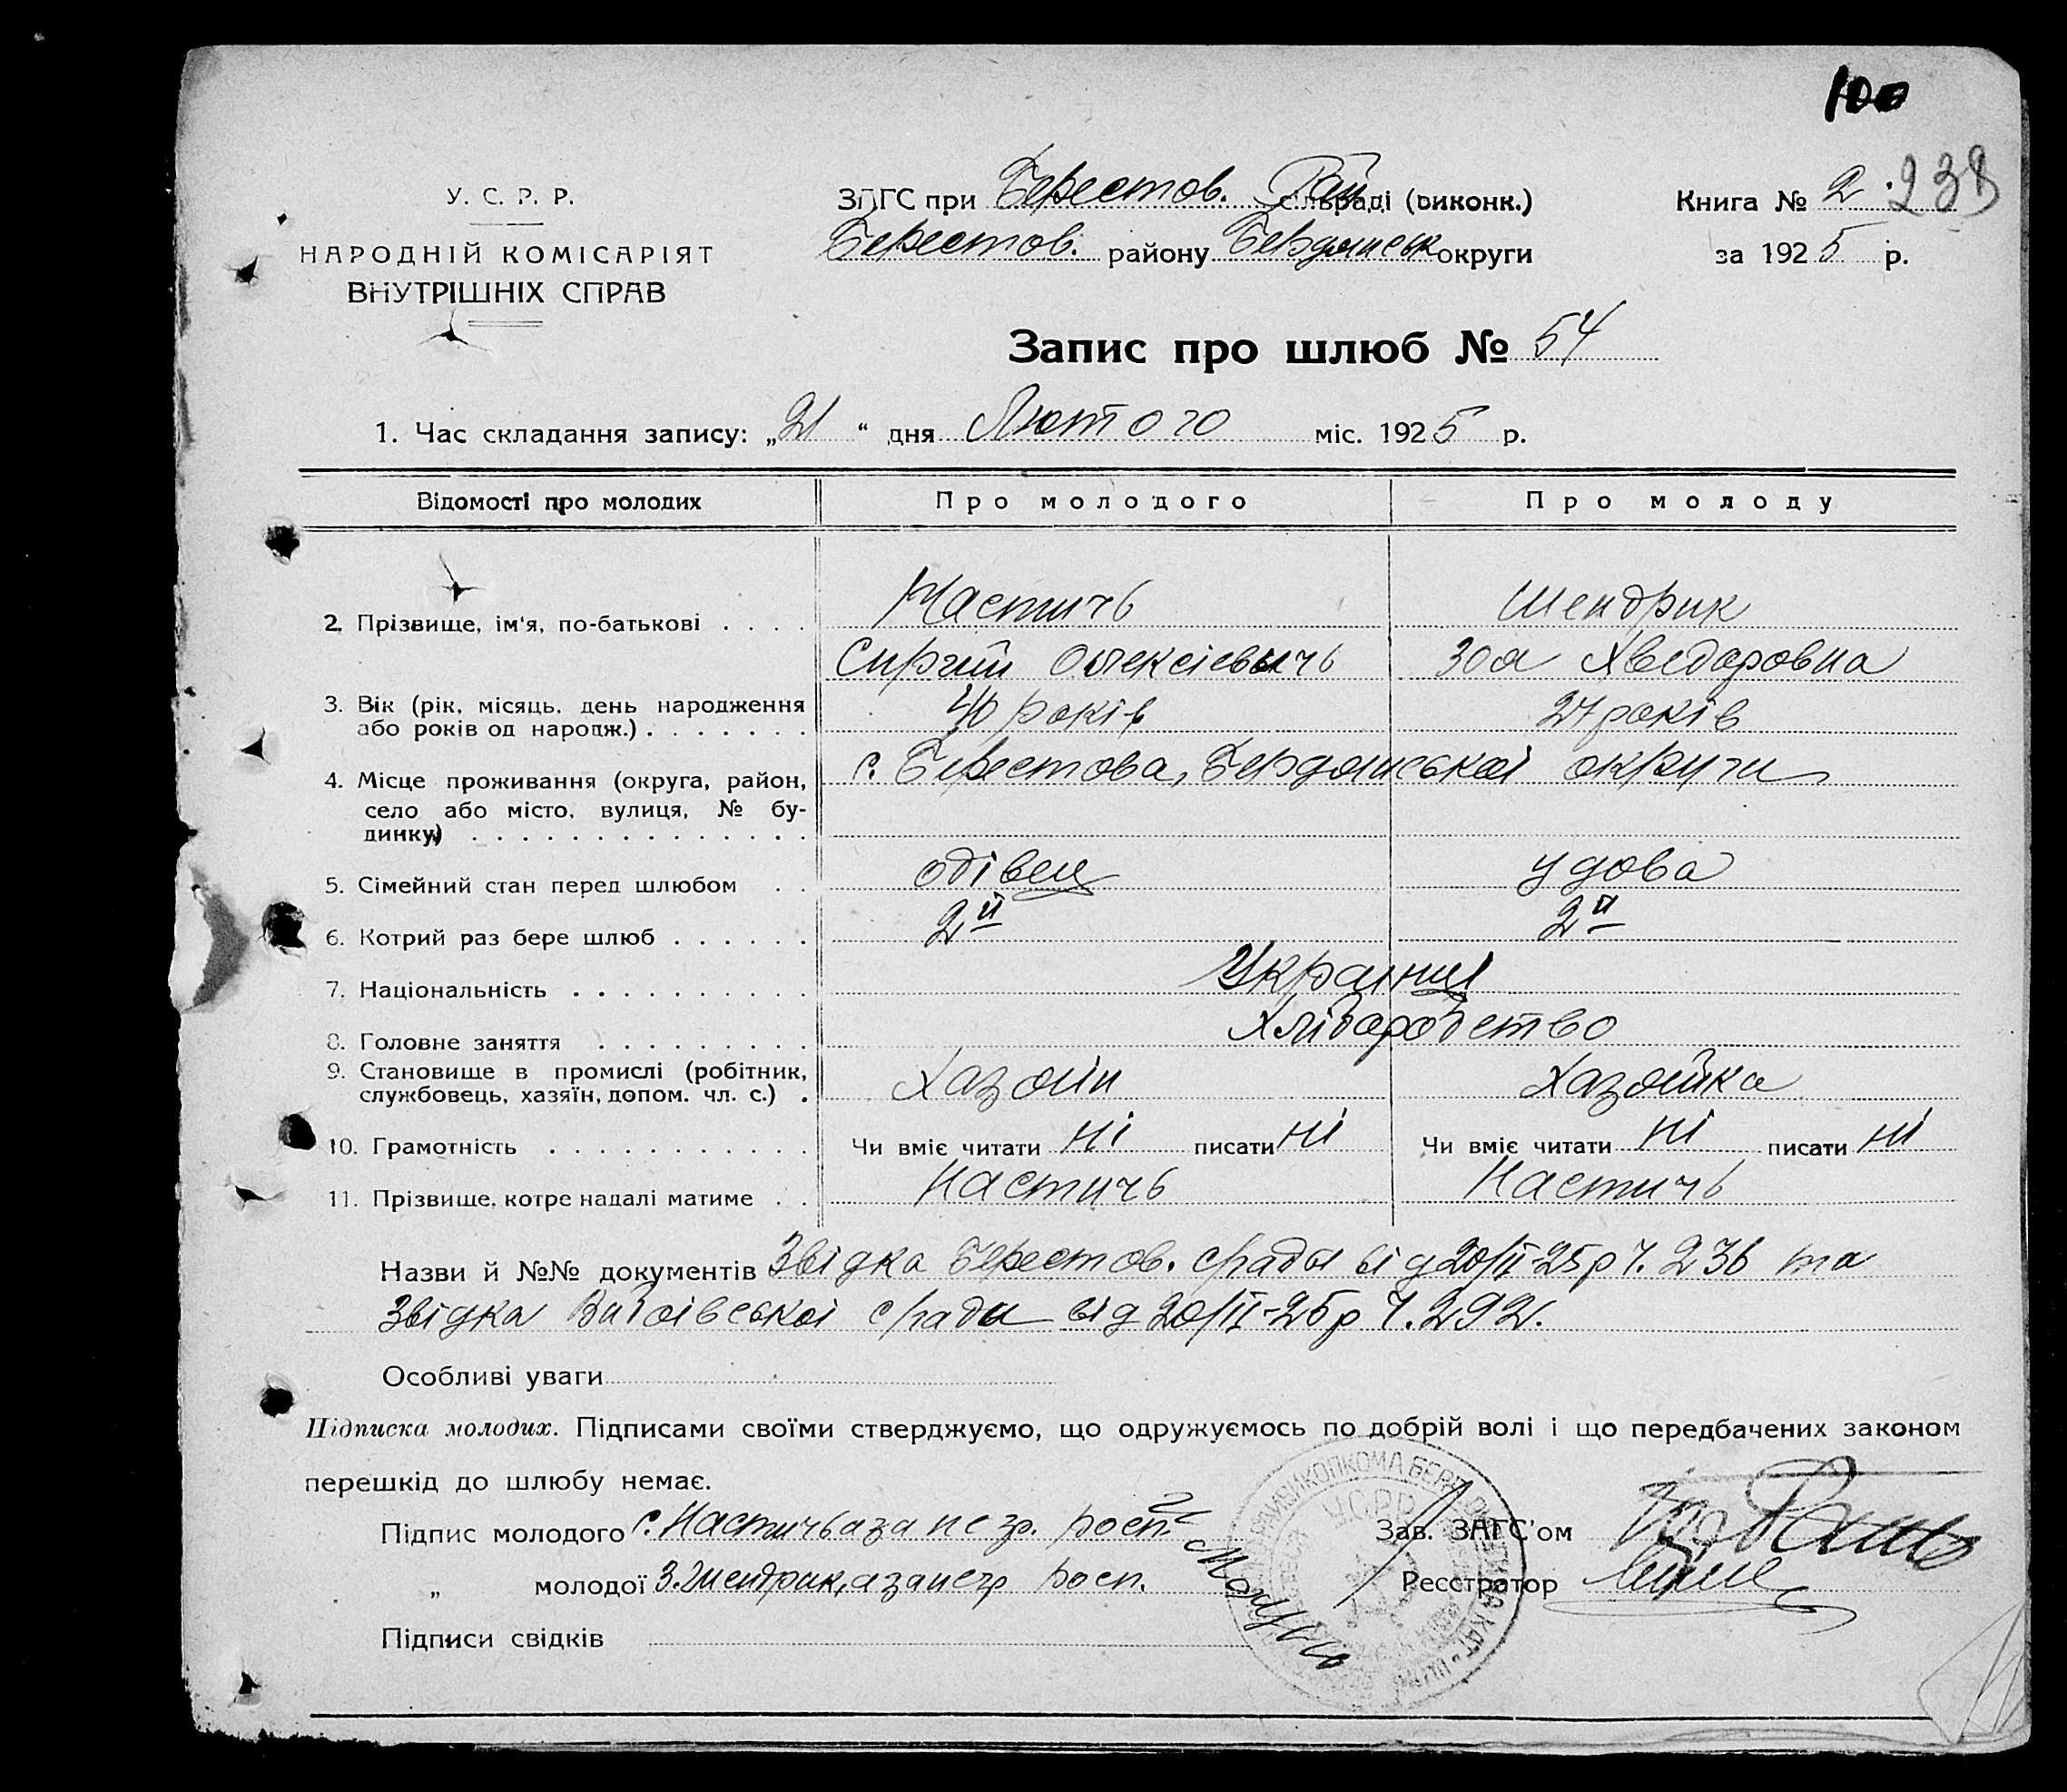 100
У. С. Р. Р.
НАРОДНІЙ КОМІСАРІЯТ
ВНУТРІШНІХ СПРАВ
ЗАГС при Берестов. Рай сільраді (виконк.)
Берестов. району Бердянськ округи
Книга № 2 238
за 1925 р.
Запис про шлюб № 54
1. Час складання запису: „21“ дня Лютого міс. 1925 р.
Відомості про молодих
Про молодого
Про молоду
2. Прізвище, ім'я, по-батькові . . . .
Настичь
Шендрик
Сиргий Олексієвичь
Зоя Хведоровна
3. Вік (рік, місяць, день народження
або років од народж.) . . . . . . .
40 років
27 років
4. Місце проживання (округа, район,
село або місто, вулиця, № бу-
динку) . . . . . . . . . . . . . .
с. Берестова, Бердянської округи
5. Сімейний стан перед шлюбом . .
одівец
удова
6. Котрий раз бере шлюб . . . . . .
2й
2й
7. Національність . . . . . . . . . .
Українці
8. Головне заняття . . . . . . . . .
Хліборобство
9. Становище в промислі (робітник,
службовець, хазяїн, допом. чл. с.) .
Хазяїн
Хазяйка
10. Грамотність . . . . . . . . . . .
Чи вміє читати ні писати ні
Чи вміє читати ні писати ні
11. Прізвище, котре надалі матиме . .
Настичь
Настичь
Назви й №№ документів Звідка Берестов. с/ради від 20/II-25р Ч. 236 та
Звідка с/ради від 20/II-25р Ч. 292.
Особливі уваги
Підписка молодих. Підписами своїми стверджуємо, що одружуємось по добрій волі і що передбачених законом
перешкід до шлюбу немає.
Підпис молодого С. Настичь а за негр. росп.
„ молодої З. Шендрик, а за негр росп.
Підписи свідків
Зав. ЗАГС'ом
Реєстратор
УСРР